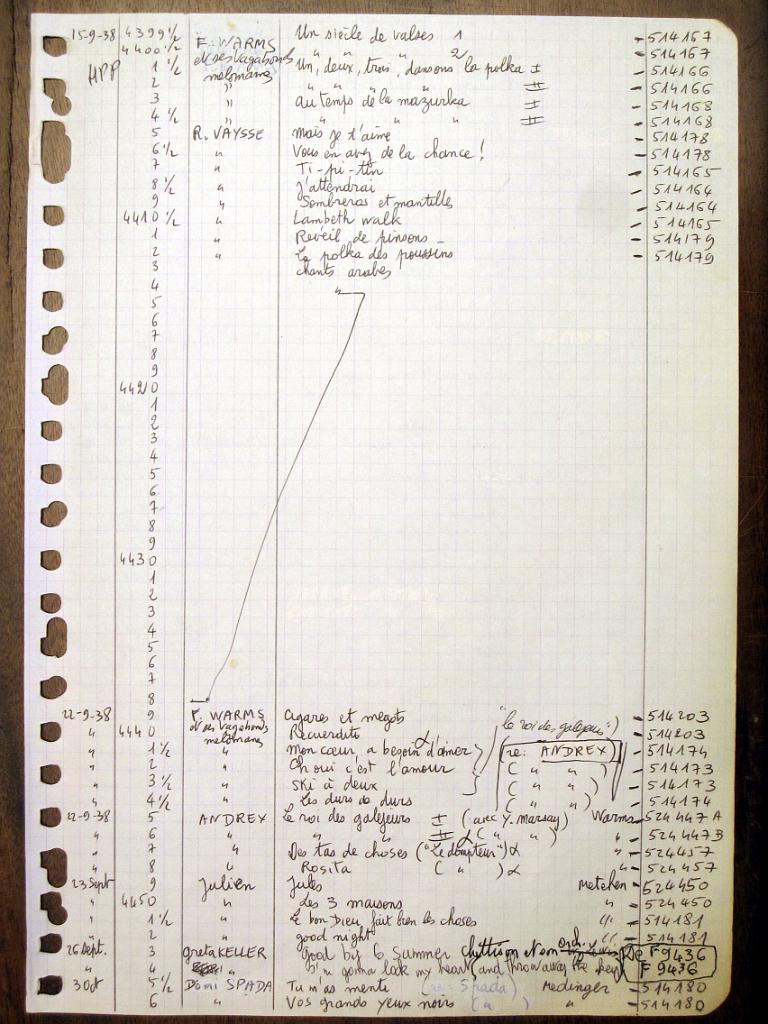 15-9-38 4399 1/2 F. WARMS Un siècle de valses 1 - 514167
4400 1/2 et ses vagabonds " " " 2 - 514167
HPP 1 1/2 mélomanes Un, deux, trois, dansons la polka I - 514166
2 " " " " II - 514166
3 " au temps de la mazurka I - 514168
4 1/2 " " " " II - 514168
5 R. VAYSSE mais je t'aime - 514178
6 1/2 " Vous en avez de la chance! - 514178
7 " Ti-pi-tin - 514165
8 1/2 " J'attendrai - 514164
9 " Sombreros et mantilles - 514164
4410 1/2 " Lambeth walk - 514165
1 " Réveil de pinsons - 514179
2 " La polka des poussins - 514179
3 chants arabes
4 "
5
6
7
8
9
4420
1
2
3
4
5
6
7
8
9
4430
1
2
3
4
5
6
7
8
22-9-38 9 F. WARMS Cigares et mégots "le roi des galéjeurs") - 514203
" 4440 et ses vagabonds Recuerdito - 514203
" 1 1/2 mélomanes mon cœur a besoin d'aimer (re: ANDREX) - 514174
" 2 " Oh oui c'est l'amour ( " " ) - 514173
" 3 1/2 " Ski à deux ( " " ) - 514173
" 4 1/2 " Les durs des durs ( " " ) - 514174
22-9-38 5 ANDREX Le roi des galéjeurs I (avec Y. marsay) Warms - 524447A
" 6 " " " II α ( " " ) " - 524447B
" 7 " Des tas de choses ("Le dompteur") α " - 524457
" 8 " Rosita ( " ) α " - 524457
23 Sept 9 Julien Jules Metehen - 524450
" 4450 " Les 3 maisons " - 524450
" 1 1/2 " Le bon Dieu fait bien les choses " - 514181
" 2 " good night " - 514181
26 sept. 3 greta KELLER good bye to summer orch. De F9436
" 4 " I'm gonna lock my heart (and throw away the key) F9436
3 Oct 5 1/2 Domi SPADA Tu m'as menti (re: Spada) Medinger - 514180
" 6 " Vos grands yeux noirs ( " ) " - 514180